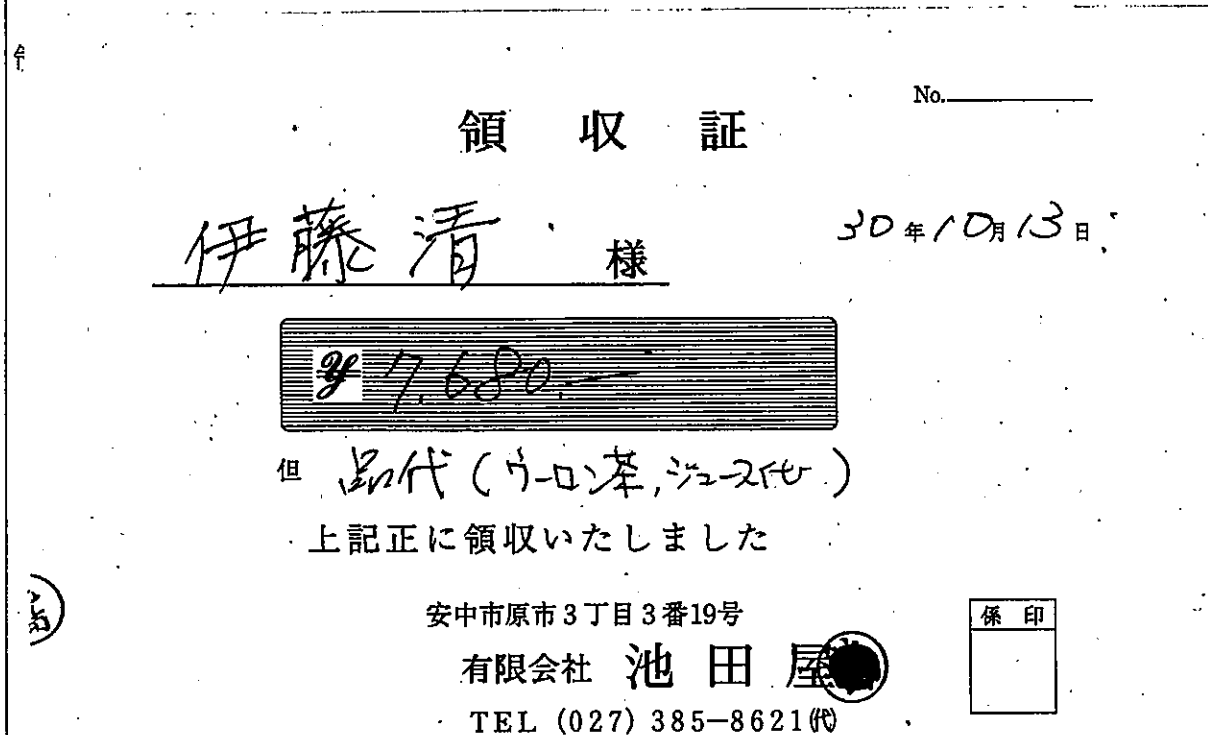 No.
領収証
伊藤清 様
30年10月13日
¥7,680.—
但 品代(ウーロン茶,ジュース他)
上記正に領収いたしました
安中市原市3丁目3番19号
有限会社 池田屋
TEL (027) 385-8621㈹
係印